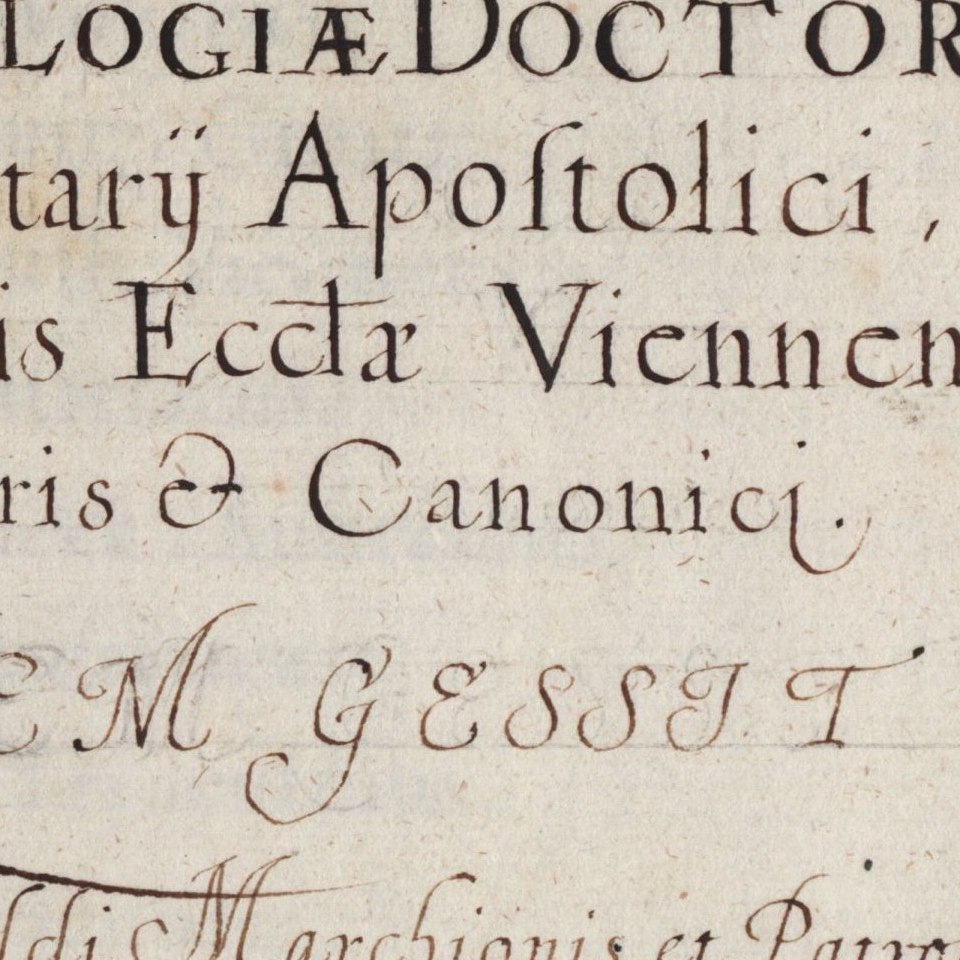 LOGIÆ DOCTOR
tarij Apoſtolici,
is Eccłæ Viennen
ris & Canonici.
EM GESSIT
ldi Marchionis et Patro